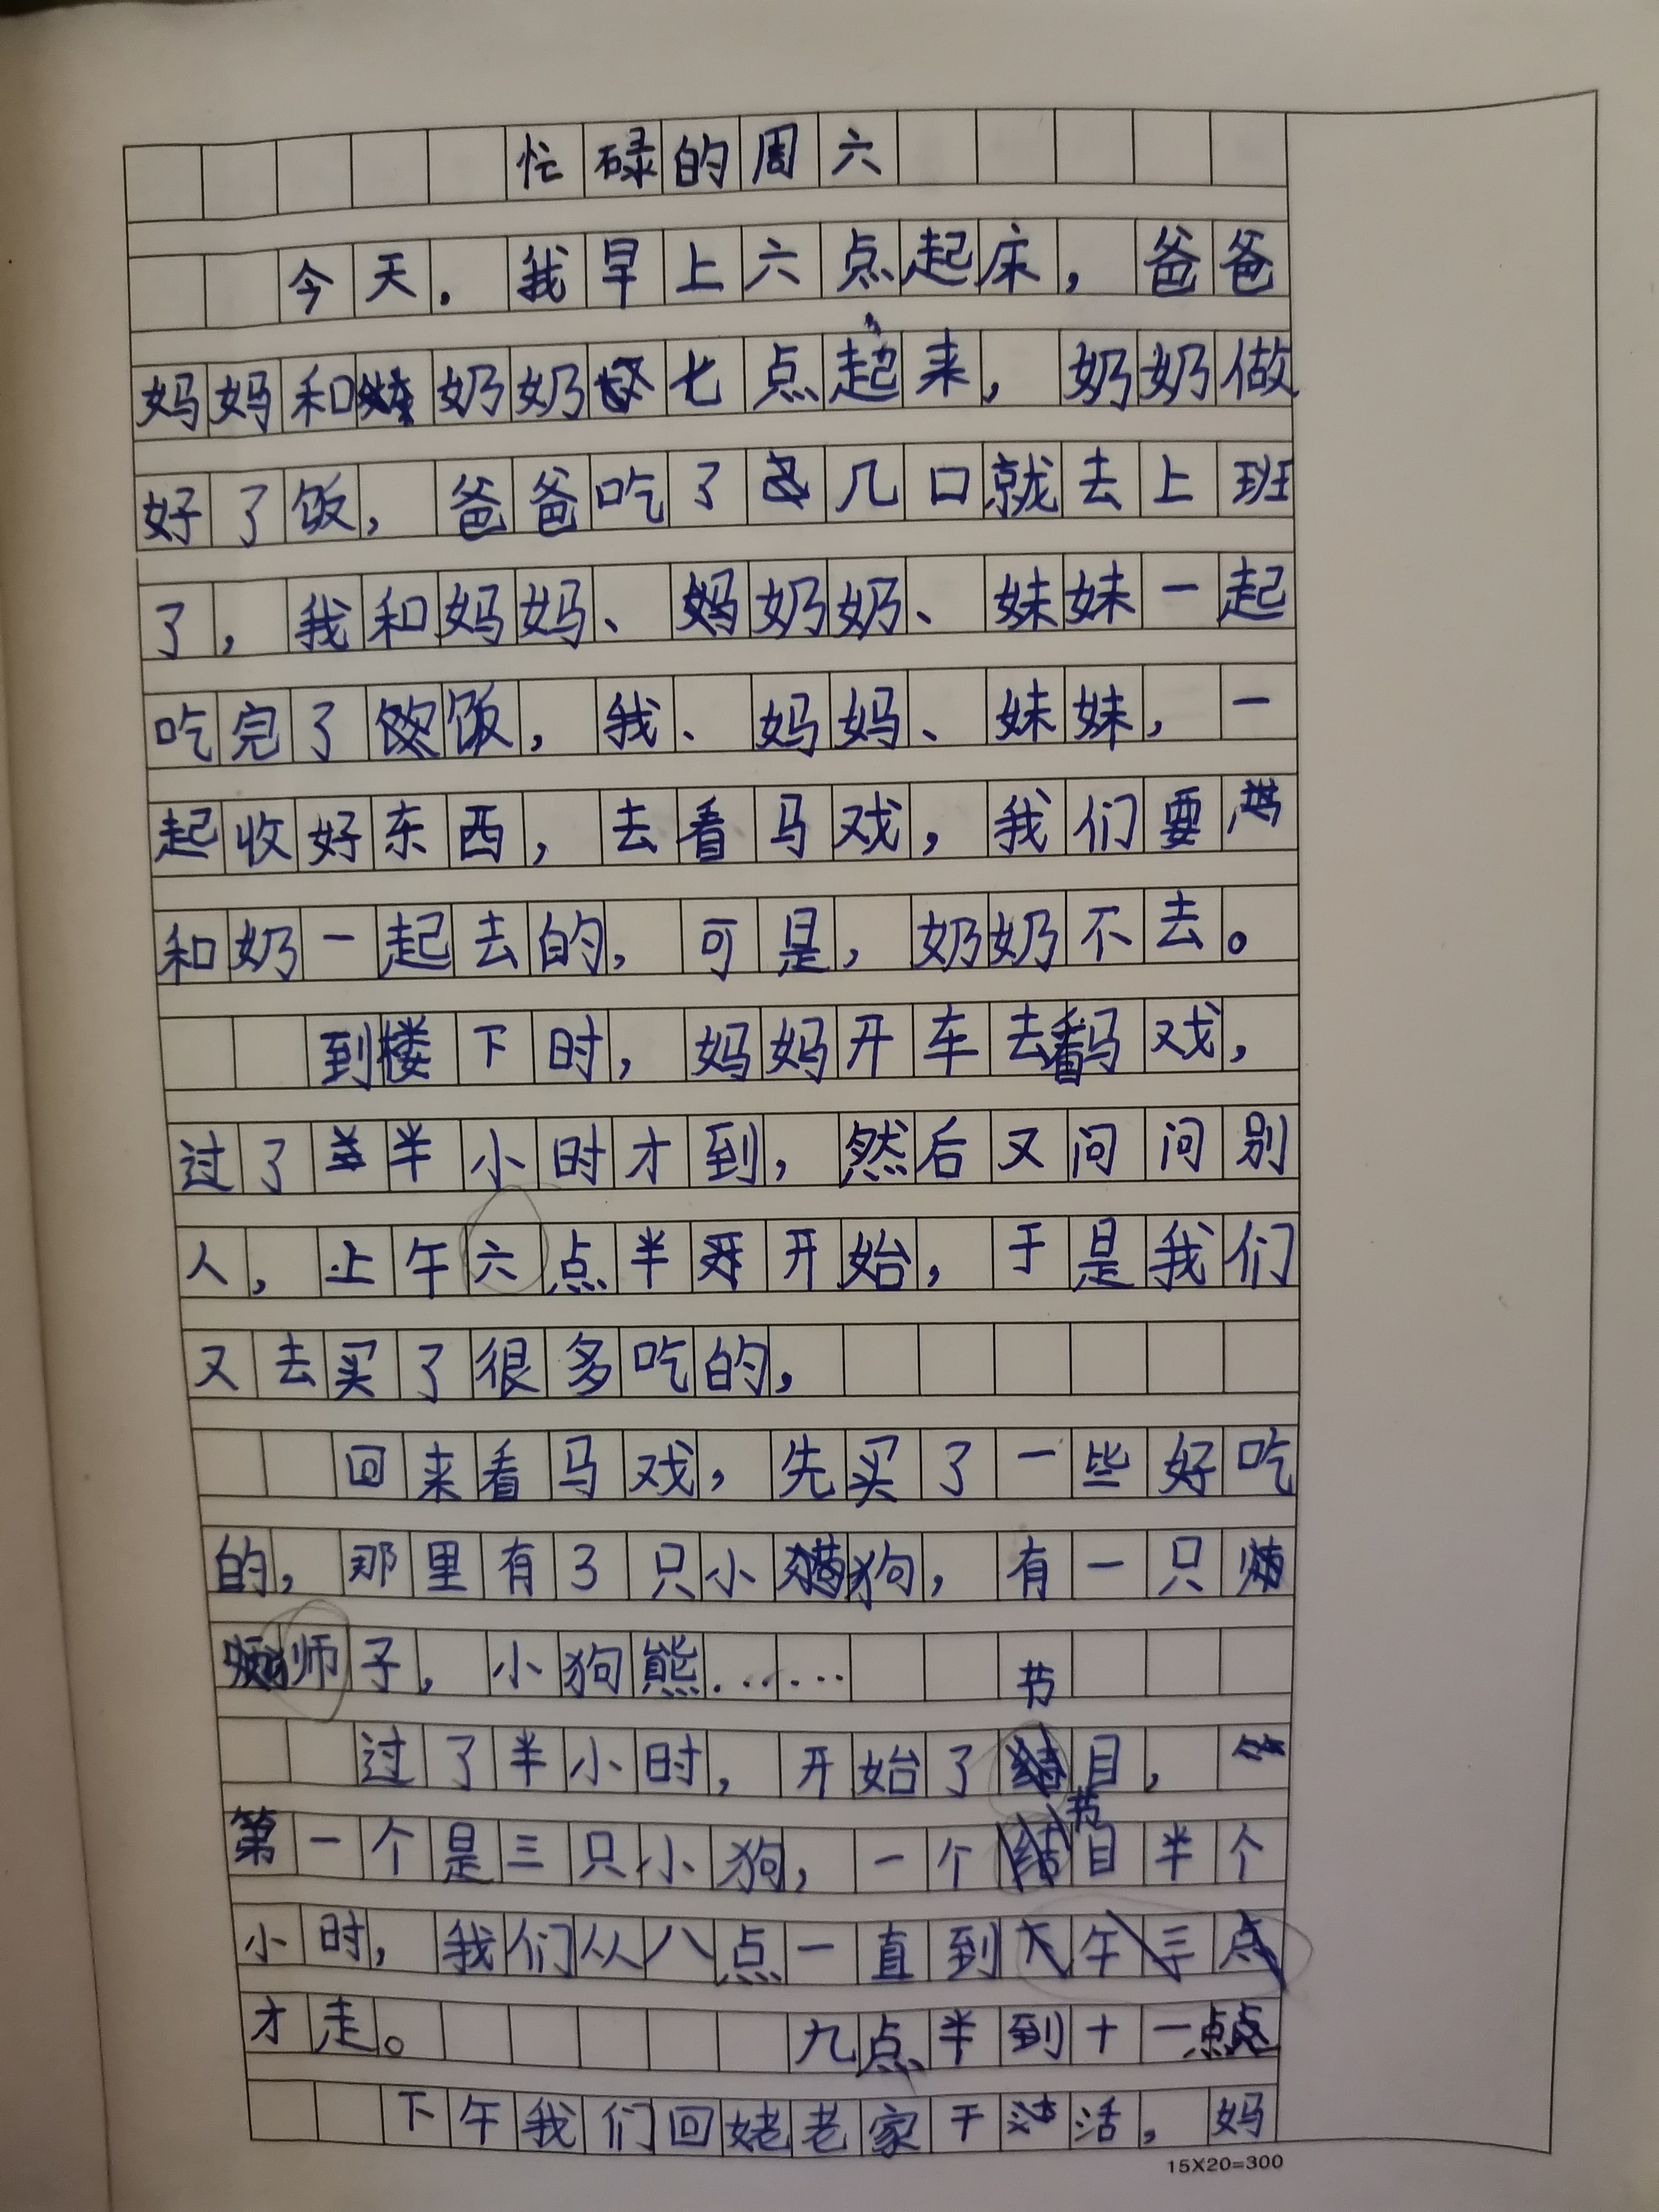 忙碌的周六
今天，我早上六点起床，爸爸
妈妈和奶奶七点起来，奶奶做
好了饭，爸爸吃了几口就去上班
了，我和妈妈、奶奶、妹妹一起
吃完了饭，我、妈妈、妹妹，一
起收好东西，去看马戏，我们要
和奶一起去的，可是，奶奶不去。
到楼下时，妈妈开车去看马戏，
过了半小时才到，然后又问问别
人，上午六点半开始，于是我们
又去买了很多吃的，
回来看马戏，先买了一些好吃
的，那里有3只小狗，有一只
师子，小狗熊……
节
过了半小时，开始了目，
节
第一个是三只小狗，一个目半个
小时，我们从八点一直到下午三点
才走。 九点半到十一点
下午我们回姥老家干活，妈
15X20=300